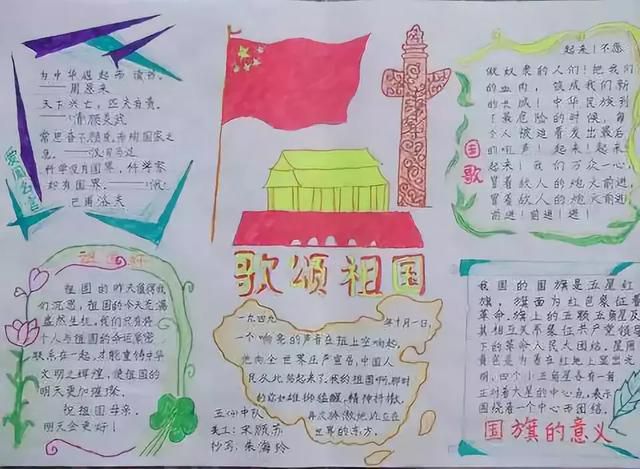 爱国名言
为中华崛起而读书。
——周恩来
天下兴亡，匹夫有责。
——清顾炎武
常思奋不顾身，而殉国家之
急。——汉司马迁
科学没有国界，科学家
却有国界。——俄
巴甫洛夫
国歌
起来！不愿
做奴隶的人们！把我们
的血肉，筑成我们新
的长城！中华民族到
了最危险的时候，每
个人被迫着发出最后
的吼声！起来！起来！
起来！我们万众一心，
冒着敌人的炮火前进，
冒着敌人的炮火前进
前进！前进！进！
歌颂祖国
祖国的昨天值得我
们沉思，祖国的今天充满
盎然生机。我们只有将
个人与祖国的命运紧密
联系在一起，才能重铸中华
文明之辉煌，使祖国的
明天更加璀璨。
祝祖国母亲，
明天会更好！
一九四九年十月一日，
一个响亮的声音在祖国上空响起，
他向全世界庄严宣告，中国人
民从此站起来了。我的祖国啊，那时
的你如雄狮猛醒，精神抖擞，
再次骄傲地屹立在
世界的东方。
五(6)中队
美工：宋颀苏
抄写：朱海玲
我国的国旗是五星红
旗，旗面为红色象征着
革命。旗上的五颗五角星及
其相互关系象征共产党领导
下的革命人民大团结。星用
黄色是为着在红地上显出光
明，四个小五角星各有一角
正对着大星的中心点，表示
围绕着一个中心而团结。
国旗的意义